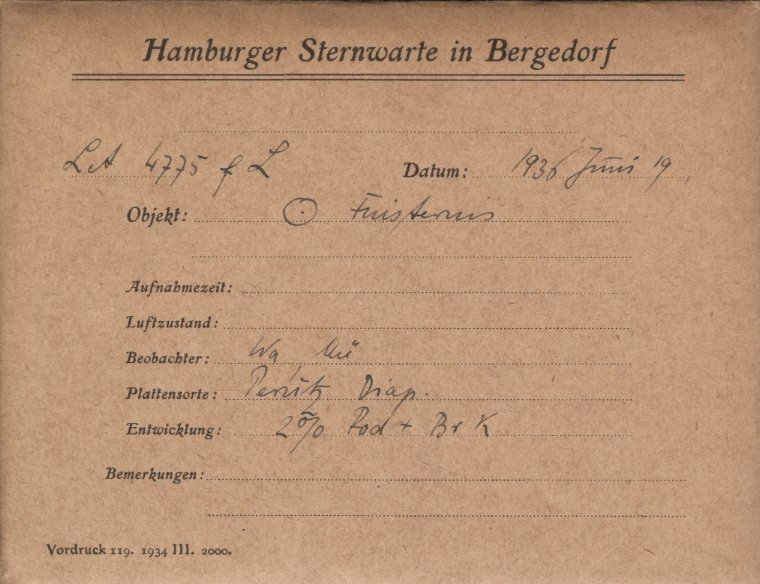 Hamburger Sternwarte in Bergedorf
LA 4775 f L Datum: 1936 Juni 19
Objekt: ☉ Finsternis
Aufnahmezeit:
Luftzustand:
Beobachter: Wa, Mü
Plattensorte: Perutz Diap.
Entwicklung: 2% Rod + Br K
Bemerkungen:
Vordruck 119. 1934 III. 2000.